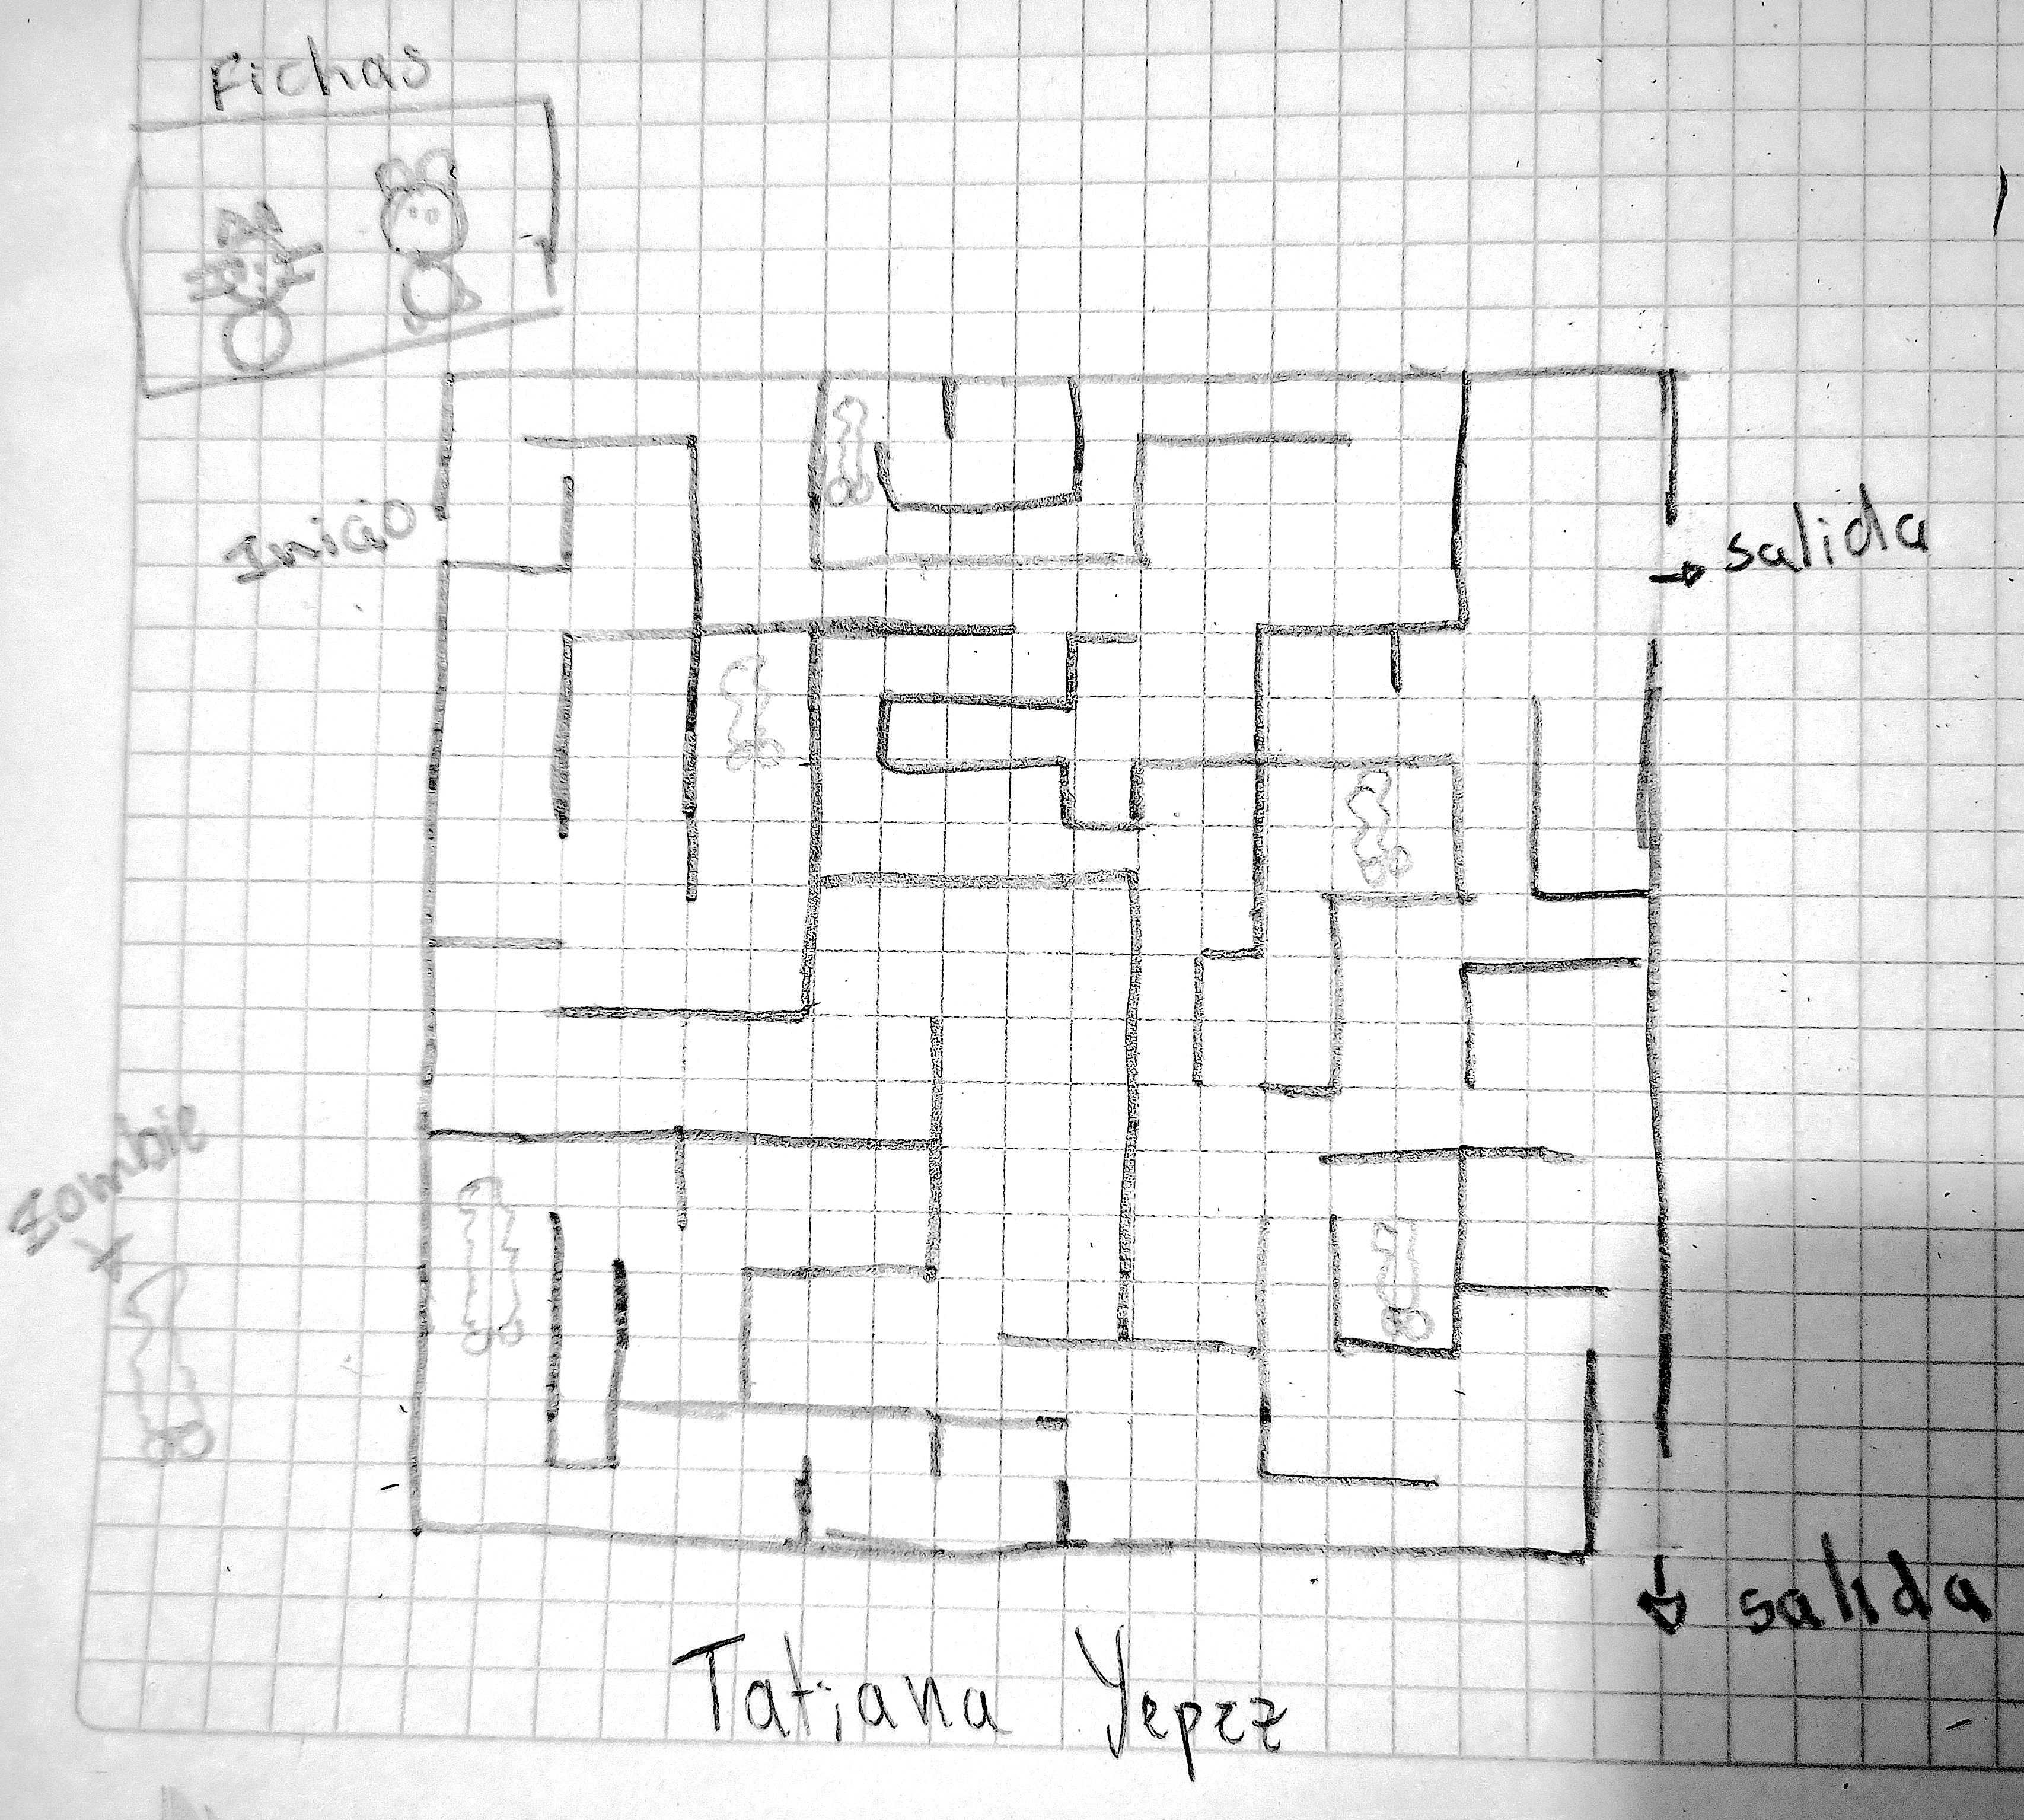 Fichas
Inicio
salida
Zombie
salida
Tatiana Yepez